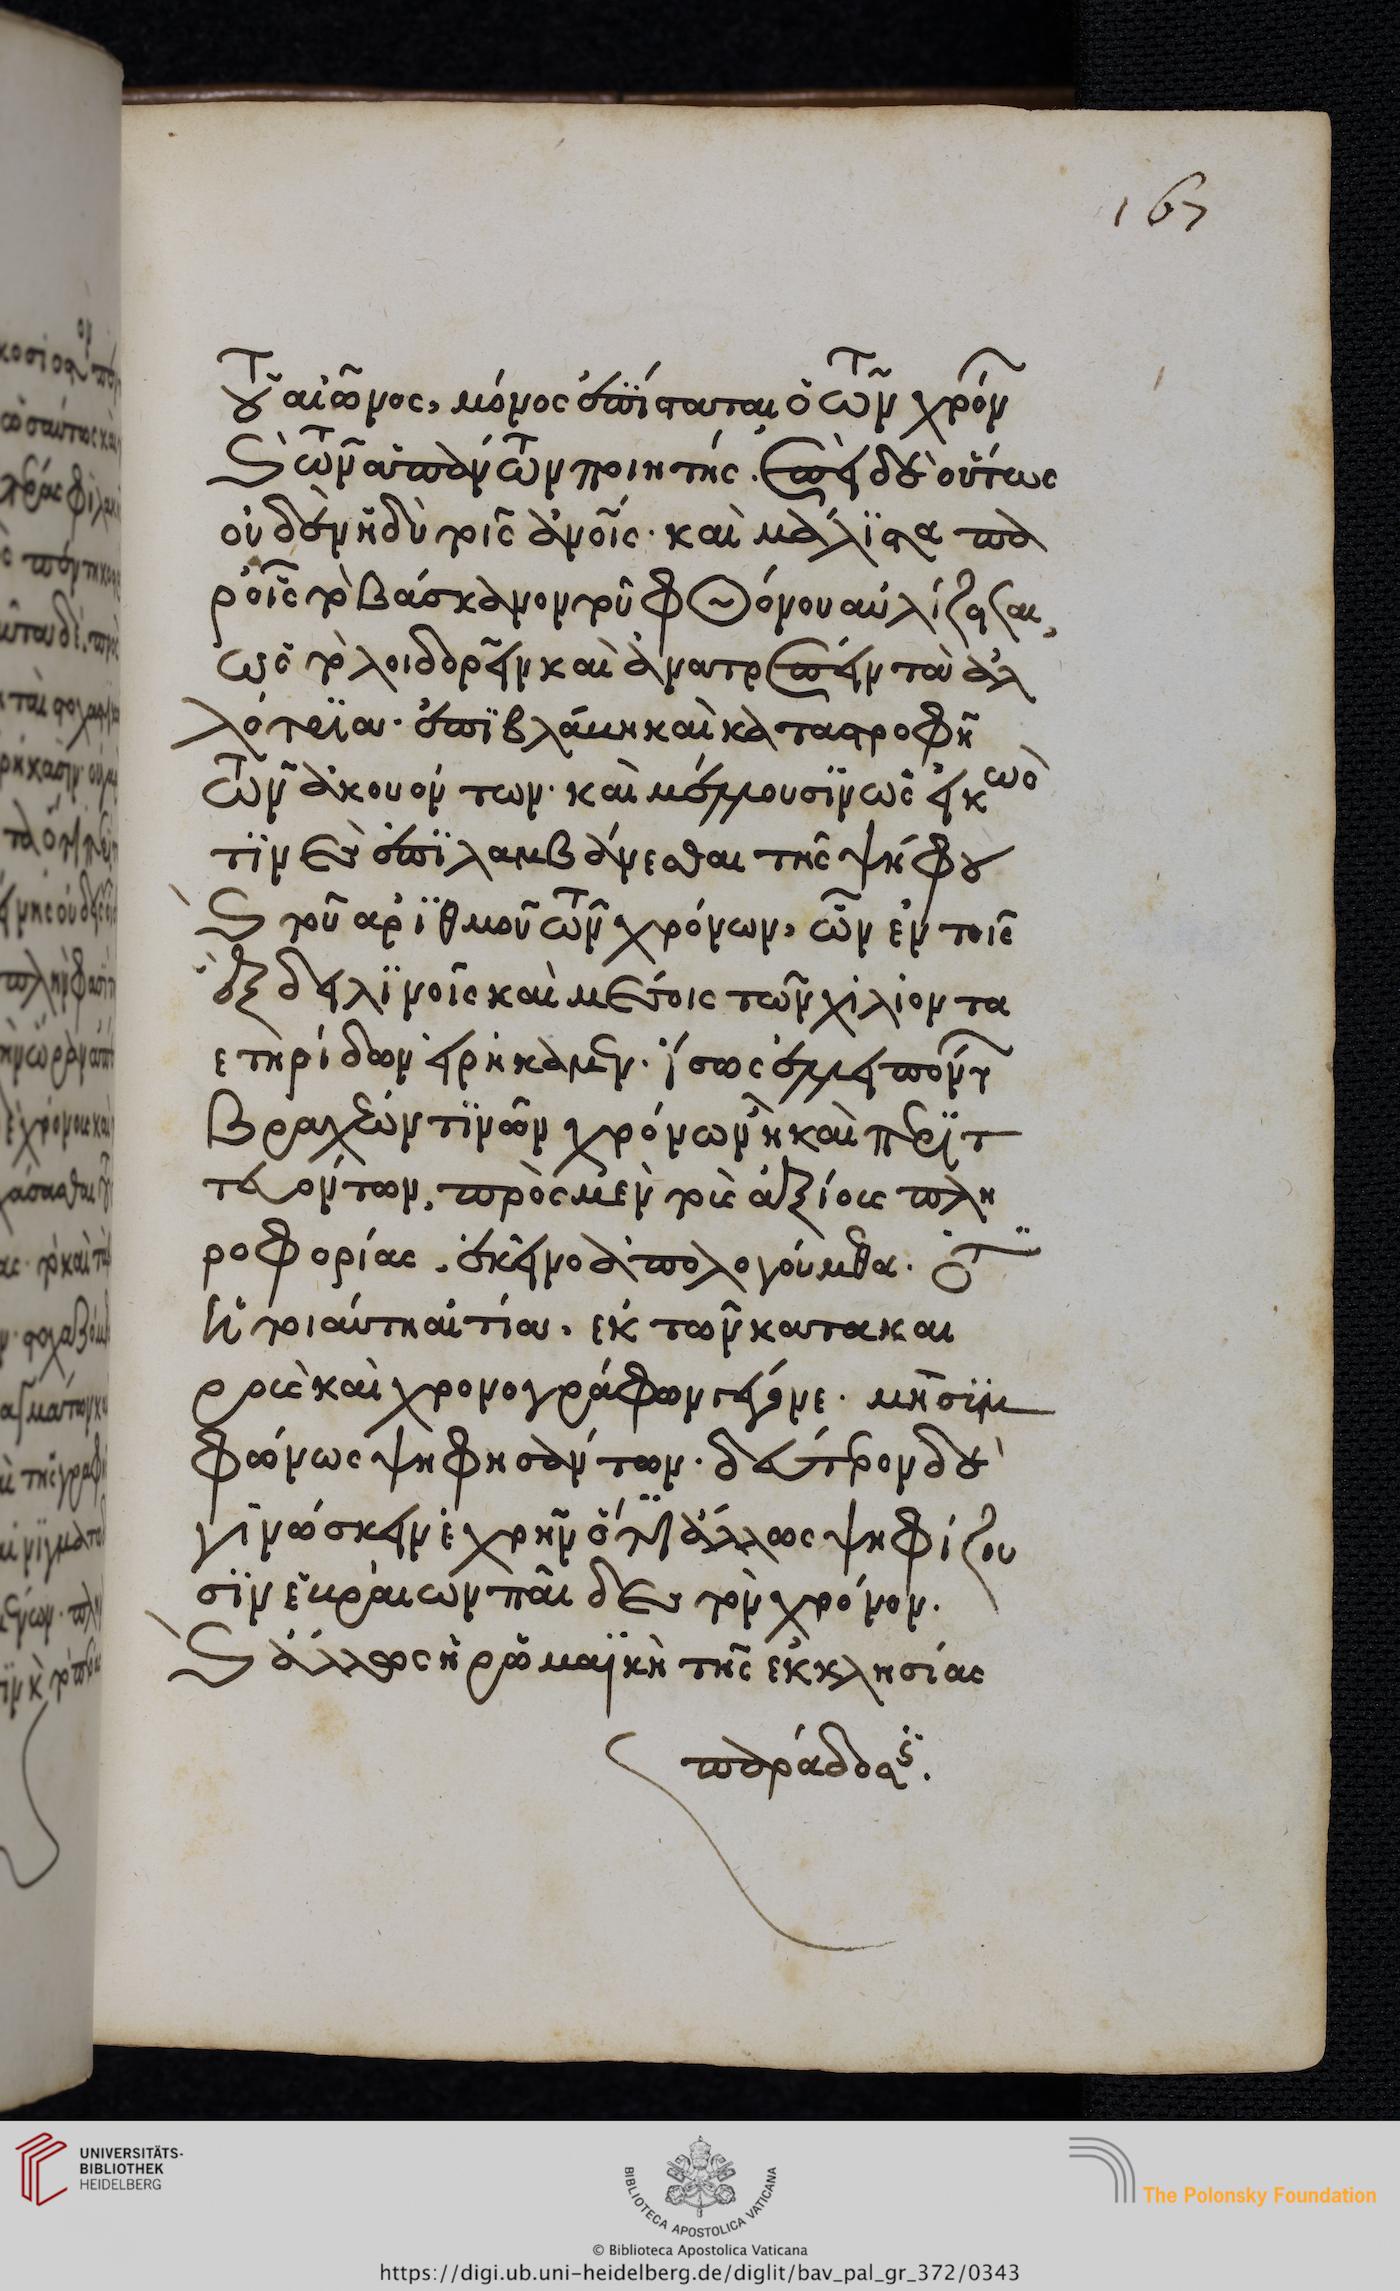 167
τοῦ αἰῶνος, μόνος ἐπίσταται ὁ τῶν χρόν
καὶ τῶν ἁπάντων ποιητής. ἐπεὶ δὲ οὕτως
οὐδὲν ἡδὺ τοῖς ἀνοις· καὶ μάλιστα πα
ρ' οἷς τὸ βάσκανον τοῦ φθόνου αὐλίζεται,
ὡς τὸ λοιδορεῖν καὶ ἀνατρέπειν τὰ ἀλ
λότρια· ἐπὶ βλάβη καὶ καταστροφῆ
τῶν ἀκουόντων· καὶ μέλλουσιν ὡς εἰκὸ
τιν εὖ ἐπιλαμβάνεσθαι τῆς ψήφου
καὶ τοῦ ἀριθμοῦ τῶν χρόνων, ὧν ἐν τοῖς
ἐξ δειλινοῖς καὶ μέτοις τῶν χιλιοντα
ετηρίδων εἰρήκαμεν· ἴσως ἐλλειπόντ
βραχέων τινῶν χρόνων ἢ καὶ περιτ
τευόντων, πρὸς μὲν τοὺς ἀξίους πλη
ροφορίας, ἐκεῖνο ἀπολογούμεθα· ὅτι
ἡ τοιαύτη αἰτία, ἐκ τῶν κατα και
ροὺς καὶ χρονογράφων γέγονε· μὴ συμ
φώνως ψηφησάντων· δεύτερον δὲ
γινώσκειν ἐχρῆν ὅτι ἄλλως ψηφίζου
σιν ἑβραίων παῖδες τὸν χρόνον·
καὶ ἄλλως ἡ ῥωμαϊκὴ τῆς ἐκκλησίας
παράδοσις.
UNIVERSITÄTS-
BIBLIOTHEK
HEIDELBERG
BIBLIOTECA APOSTOLICA VATICANA
The Polonsky Foundation
© Biblioteca Apostolica Vaticana
https://digi.ub.uni-heidelberg.de/diglit/bav_pal_gr_372/0343